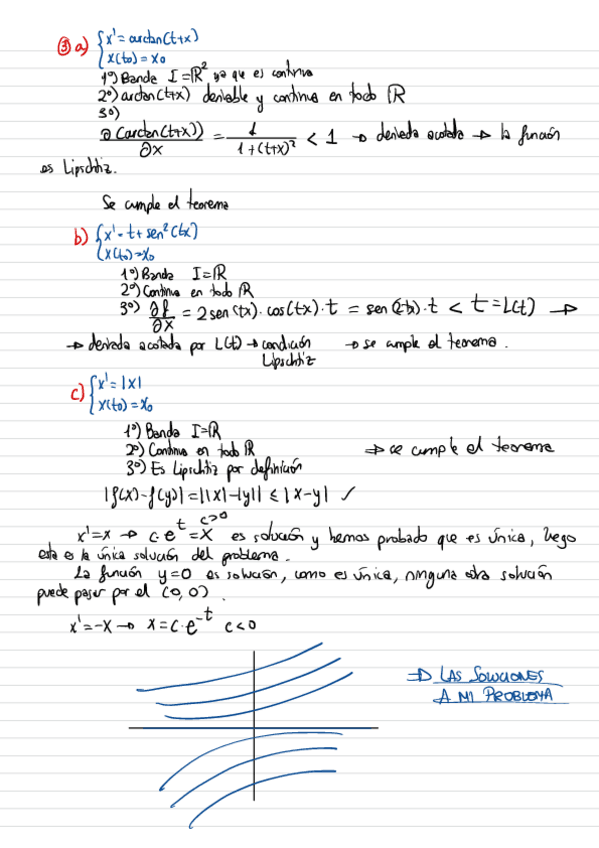 ③ a) { x' = arctan(t+x)
x(t₀) = x₀
1º) Banda I = ℝ² ya que es continua
2º) arctan(t+x) derivable y continua en todo ℝ
3º)
∂(arctan(t+x))/∂x = 1/(1+(t+x)²) < 1 → derivada acotada → la función
es Lipschtiz.
Se cumple el teorema
b) { x' = t + sen²(tx)
x(t₀) = x₀
1º) Banda I = ℝ
2º) Continua en todo ℝ
3º) ∂f/∂x = 2 sen(tx) · cos(tx) · t = sen(2tx) · t < t = L(t) →
→ derivada acotada por L(t) → condición → se cumple el teorema.
Lipschtiz
c) { x' = |x|
x(t₀) = x₀
1º) Banda I = ℝ
2º) Continua en todo ℝ ⇒ se cumple el teorema
3º) Es Lipschtiz por definición
|f(x) - f(y)| = ||x| - |y|| ≤ |x - y| ✓
x' = x → c·eᵗ = x c>0 es solución y hemos probado que es única, luego
esta es la única solución del problema.
La función y=0 es solución, como es única, ninguna otra solución
puede pasar por el (0,0).
x' = -x → x = c·e⁻ᵗ c<0
⇒ LAS SOLUCIONES
A MI PROBLEMA